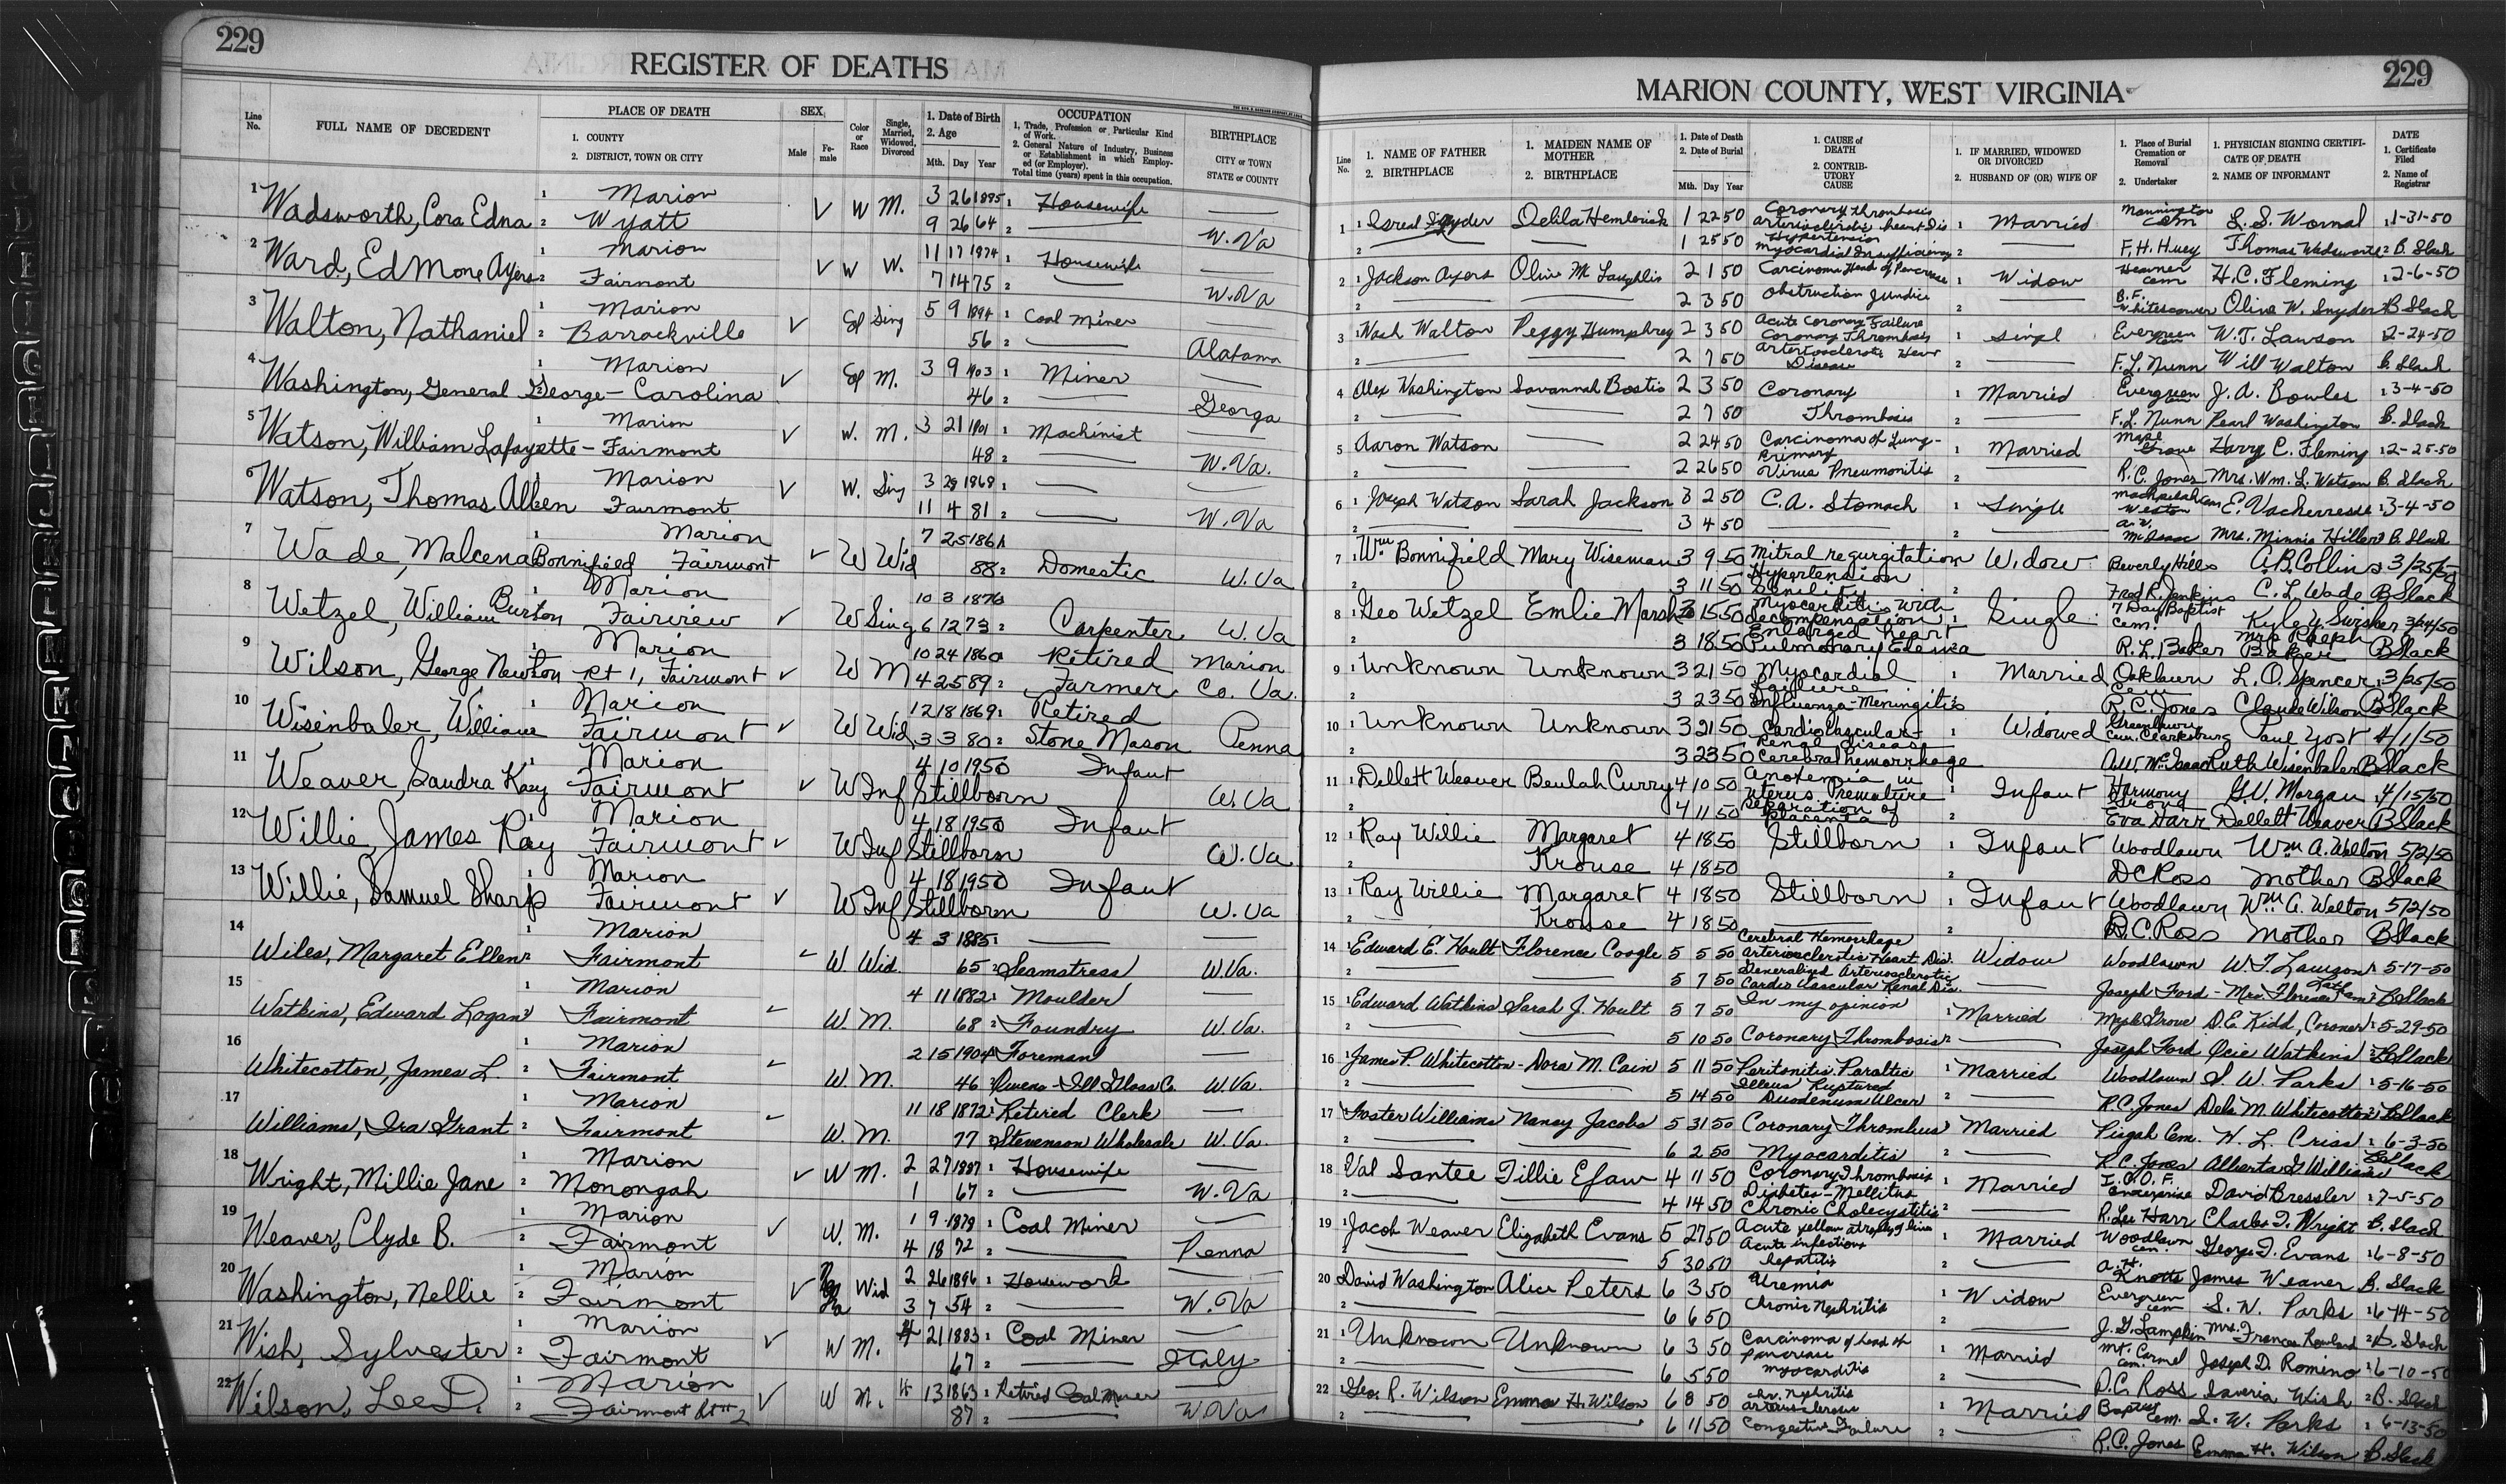 229
REGISTER OF DEATHS
Line No.
FULL NAME OF DECEDENT
PLACE OF DEATH
1. COUNTY
2. DISTRICT, TOWN OR CITY
SEX
Male
Female
Color or Race
Single, Married, Widowed, Divorced
1. Date of Birth
2. Age
Mth. Day Year
OCCUPATION
1. Trade, Profession or Particular Kind of Work.
2. General Nature of Industry, Business or Establishment in which Employed (or Employer).
Total time (years) spent in this occupation.
BIRTHPLACE
CITY or TOWN
STATE or COUNTY
1 Marion V W M. 3 26 1895 1 Housewife
Wadsworth, Cora Edna 2 Wyatt 9 26 64 2 W. Va
2 Marion V W W. 11 17 1874 1 Housewife
Ward, Ed Mone Ayers 2 Fairmont 7 14 75 2 W. Va
3 Marion V Col Sing 5 9 1894 1 Coal Miner
Walton, Nathaniel 2 Barrackville 56 2 Alabama
4 Marion V Col M. 3 9 1903 1 Miner
Washington, General George - Carolina 46 2 Georga
5 Marion V W. M. 3 21 1901 1 Machinist
Watson, William Lafayette - Fairmont 48 2 W. Va.
6 Marion V W. Sing 3 28 1868 1
Watson, Thomas Allen Fairmont 11 4 81 2 W. Va
7 Marion 7 25 1861
Wade, Malcena Bonnifield Fairmont V W Wid 88 2 Domestic W. Va
8 Marion 10 3 1876
Wetzel, William Burton Fairview V W Sing 6 12 73 2 Carpenter W. Va
9 Marion 10 24 1860 Retired Marion
Wilson, George Newton Rt 1, Fairmont V W M 4 25 89 2 Farmer Co. Va.
10 Marion 12 18 1869 1 Retired
Wisenbaler, William Fairmont V W Wid 3 3 80 2 Stone Mason Penna
11 Marion 4 10 1950 Infant
Weaver, Sandra Kay Fairmont V W Inf Stillborn W. Va
12 Marion 4 18 1950 Infant
Willie, James Ray Fairmont V W Inf Stillborn W. Va
13 Marion 4 18 1950 Infant
Willie, Samuel Sharp Fairmont V W Inf Stillborn W. Va
14 1 Marion 4 3 1885 1
Wiles, Margaret Ellen 2 Fairmont W. Wid. 65 2 Seamstress W. Va.
15 1 Marion 4 11 1882 1 Moulder
Watkins, Edward Logan 2 Fairmont W. M. 68 2 Foundry W. Va.
16 1 Marion 2 15 1904 1 Foreman
Whitecotton, James L. 2 Fairmont W. M. 46 2 Owens - Ill Glass Co. W. Va.
17 1 Marion 11 18 1872 1 Retired Clerk
Williams, Ira Grant 2 Fairmont W. M. 77 2 Stevenson Wholesale W. Va.
18 1 Marion V W M. 2 27 1887 1 Housewife
Wright, Millie Jane 2 Monongah 1 67 2 W. Va
19 1 Marion V W. M. 1 9 1878 1 Coal Miner
Weaver, Clyde B. 2 Fairmont 4 18 72 2 Penna
20 1 Marion V Wid 2 26 1896 1 Housework
Washington, Nellie 2 Fairmont 3 7 54 2 W. Va
21 1 Marion V W M. 4 21 1883 1 Coal Miner
Wish, Sylvester 2 Fairmont 67 2 Italy
22 1 Marion V W M. 4 13 1863 1 Retired Coal Miner
Wilson, Lee D. 2 Fairmont Rt # 2 87 2 W. Va
229
MARION COUNTY, WEST VIRGINIA
Line No.
1. NAME OF FATHER
2. BIRTHPLACE
1. MAIDEN NAME OF MOTHER
2. BIRTHPLACE
1. Date of Death
2. Date of Burial
Mth. Day Year
1. CAUSE OF DEATH
2. CONTRIBUTORY CAUSE
1. IF MARRIED, WIDOWED OR DIVORCED
2. HUSBAND OF (OR) WIFE OF
1. Place of Burial Cremation or Removal
2. Undertaker
1. PHYSICIAN SIGNING CERTIFICATE OF DEATH
2. NAME OF INFORMANT
DATE
1. Certificate Filed
2. Name of Registrar
1 1 Isreal Snyder Delila Hemlerick 1 22 50 Coronary thrombosis arteriosclerotic heart Dis 1 Married Mannington Cem L. S. Wornal 1 1-31-50
1 25 50 Hypertension myocardial Insufficiency 2 F. H. Huey Thomas Wadsworth 2 B. Slack
2 1 Jackson Ayers Olive McLaughlin 2 1 50 Carcinoma Head of Pancrease 1 Widow Heavner Cem H. C. Fleming 1 2-6-50
2 2 3 50 Obstruction Jundice 2 B. F. Whitescarver Olive W. Snyder 2 B Slack
3 1 Wash Walton Peggy Humphrey 2 3 50 Acute Coronary Failure Coronary Thrombosis 1 Singl Evergreen Cem W. T. Lawson 2-24-50
2 2 7 50 Arteriosclerotic Heart Disease 2 F. L. Nunn Will Walton B. Slack
4 Alex Washington Savannah Bostic 2 3 50 Coronary 1 Married Evergreen Cem J. A. Bowles 1 3-4-50
2 2 7 50 Thrombosis 2 F. L. Nunn Pearl Washington B. Slack
5 Aaron Watson 2 24 50 Carcinoma of Lung - Primary 1 Married Maple Grove Harry C. Fleming 1 2-25-50
2 2 26 50 Virus Pneumonitis 2 R. C. Jones Mrs. Wm. L. Watson B. Slack
6 1 Joseph Watson Sarah Jackson 3 2 50 C.A. Stomach 1 Single Machpelah Cem Weston E. Vacherresse 1 3-4-50
2 3 4 50 2 A. W. McIsaac Mrs. Minnie B. Slack
7 1 Wm Bonnifield Mary Wiseman 3 9 50 Mitral regurgitation Widow Beverly Hills C. B. Collins 3/25/50
2 3 11 50 Hypertension Senility 2 Fred R. Jenkins C. L. Wade B Slack
8 1 Geo Wetzel Emlie Marsh 3 15 50 Myocarditis with decompensation 1 Single 7 Day Baptist Cem. Kyle Y. Swisher 3/24/50
2 3 18 50 Enlarged heart Pulmonary Edema 2 R. L. Baker Mrs Ralph Baker B Slack
9 1 Unknown Unknown 3 21 50 Myocardial Failure 1 Married Oaklawn Cem L. O. Spencer 1 3/25/50
2 3 23 50 Influenza - Meningitis R. C. Jones Claude Wilson B Slack
10 1 Unknown Unknown 3 21 50 Cardio Vascular - Renal disease 1 Widowed Greenlawn Cem. Clarksburg Paul Yost 4/1/50
2 3 23 50 Cerebral hemorrhage A. W. McIsaac Ruth Wisenbaler B Slack
11 1 Dellett Weaver Beulah Curry 4 10 50 Anoxemia in uterus Premature 1 Infant Harmony Grove G. V. Morgan 4/15/50
2 4 11 50 Separation of placenta 2 Eva Harr Dellett Weaver B Slack
12 1 Ray Willie Margaret 4 18 50 Stillborn 1 Infant Woodlawn Wm A. Welton 5/2/50
2 Krouse 4 18 50 2 D C Ross Mother B Slack
13 1 Ray Willie Margaret 4 18 50 Stillborn 1 Infant Woodlawn Wm A. Welton 5/2/50
2 Krouse 4 18 50 2 D. C. Ross Mother B Slack
14 1 Edward E. Hoult Florence Coogle 5 5 50 Cerebral Hemorrhage Arteriosclerotic Heart Dis. Widow Woodlawn W. T. Lawson 1 5-17-50
2 5 7 50 Generalized Arteriosclerotic Cardio Vascular Renal Dis. Joseph Ford - Mrs. Florence Latham 2 B Slack
15 1 Edward Watkins Sarah J. Hoult 5 7 50 In my opinion 1 Married Maple Grove D. E. Kidd, Coroner 1 5-29-50
2 5 10 50 Coronary Thrombosis 2 Joseph Ford Ocie Watkins 2 B Slack
16 1 James P. Whitecotton - Dora M. Cain 5 11 50 Peritonitis Paraltic 1 Married Woodlawn S. W. Parks 1 5-16-50
2 5 14 50 Illeus Ruptured Duodenum Ulcer 2 R. C. Jones Dela M. Whitecotton 2 B Slack
17 1 Foster Williams Nancy Jacobs 5 31 50 Coronary Thrombus 1 Married Pisgah Cem. H. L. Criss 1 6-3-50
2 6 2 50 Myocarditis 2 R. C. Jones Alberta G Williams B Slack
18 1 Val Santee Tillie Efaw 4 11 50 Coronary Thrombosis 1 Married I. O. O. F. Enterprise David Bressler 1 7-5-50
2 4 14 50 Diabetes - Mellitus Chronic Cholecystitis 2 R. Lee Harr Charles T. Wright B. Slack
19 1 Jacob Weaver Elizabeth Evans 5 27 50 Acute yellow atrophy of liver 1 Married Woodlawn Cem. George T. Evans 1 6-8-50
2 5 30 50 Acute infections hepatitis 2 A. H. Knotts James Weaver B. Slack
20 1 David Washington Alice Peters 6 3 50 Uremia 1 Widow Evergreen Cem S. W. Parks 1 6-14-50
2 6 6 50 Chronic Nephritis 2 J. G. Lampkin Mrs. Frances Rowland 2 B. Slack
21 1 Unknown Unknown 6 3 50 Carcinoma of head of pancrease 1 Married Mt. Carmel Cem. Joseph D. Romino 1 6-10-50
2 6 5 50 Myocarditis 2 D. C. Ross Saveria Wish 2 B. Slack
22 1 Geo. R. Wilson Emma H. Wilson 6 8 50 Chr. Nephritis arteriosclerosis 1 Married Baptist Cem. S. W. Parks 1 6-13-50
2 6 11 50 Congestive Failure 2 R. C. Jones Emma H. Wilson B. Slack